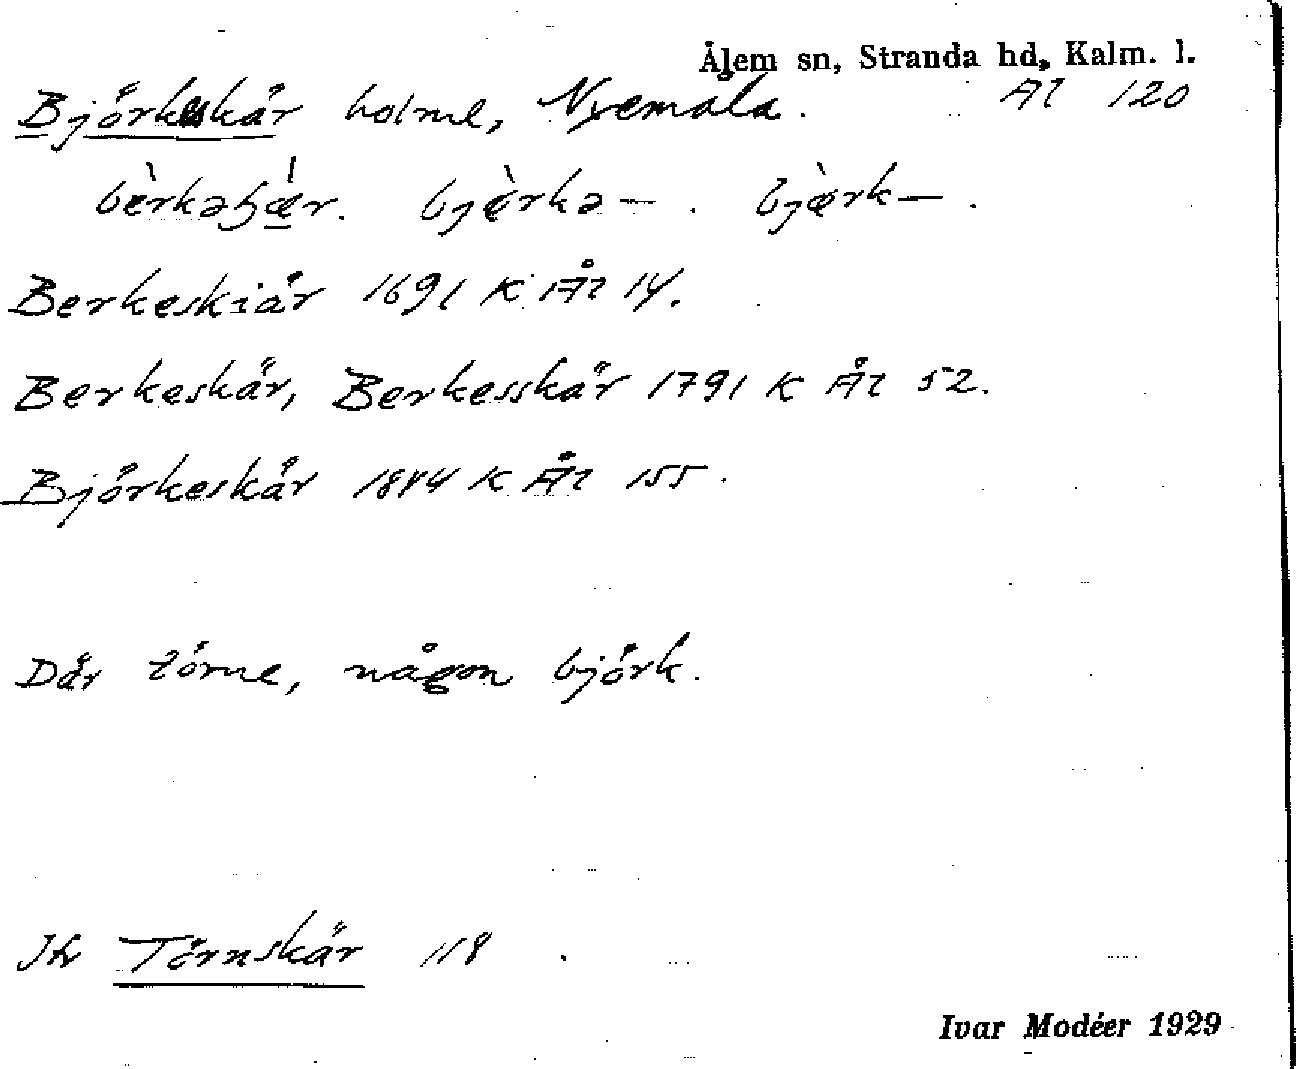 Ålem sn, Stranda hd, Kalm. l.
Björkeskär holme, Nyemåla. Ål 120
bèrkəʂǽr. bjèrkə – . bjærk – .
Berkeskiär 1691 K Ål 14.
Berkeskär, Berkesskär 1791 K Ål 52.
Björkeskär 1844 K Ål 155.
Där törne, någon björk.
Jfr Törnskär 118 .
Ivar Modéer 1929